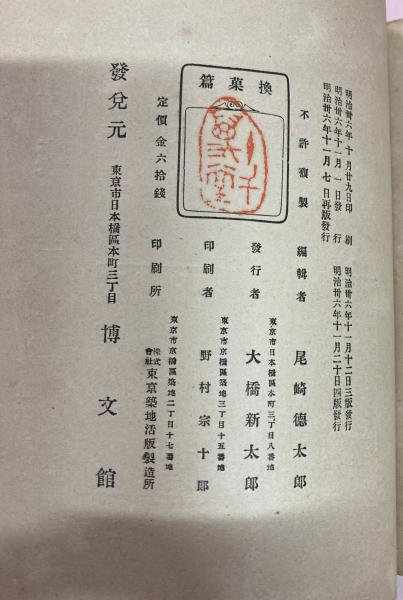 明治卅六年十月廿九日印刷
明治卅六年十一月一日發行
明治卅六年十一月七日再版發行
明治卅六年十一月十二日三版發行
明治卅六年十一月二十日四版發行
換菓篇
不許複製
定價金六拾錢
編輯者
尾崎德太郎
發行者
東京市日本橋區本町三丁目八番地
大橋新太郎
印刷者
東京市京橋區築地三丁目十五番地
野村宗十郎
印刷所
東京市京橋區築地二丁目十七番地
株式會社東京築地活版製造所
發兌元
東京市日本橋區本町三丁目
博文館